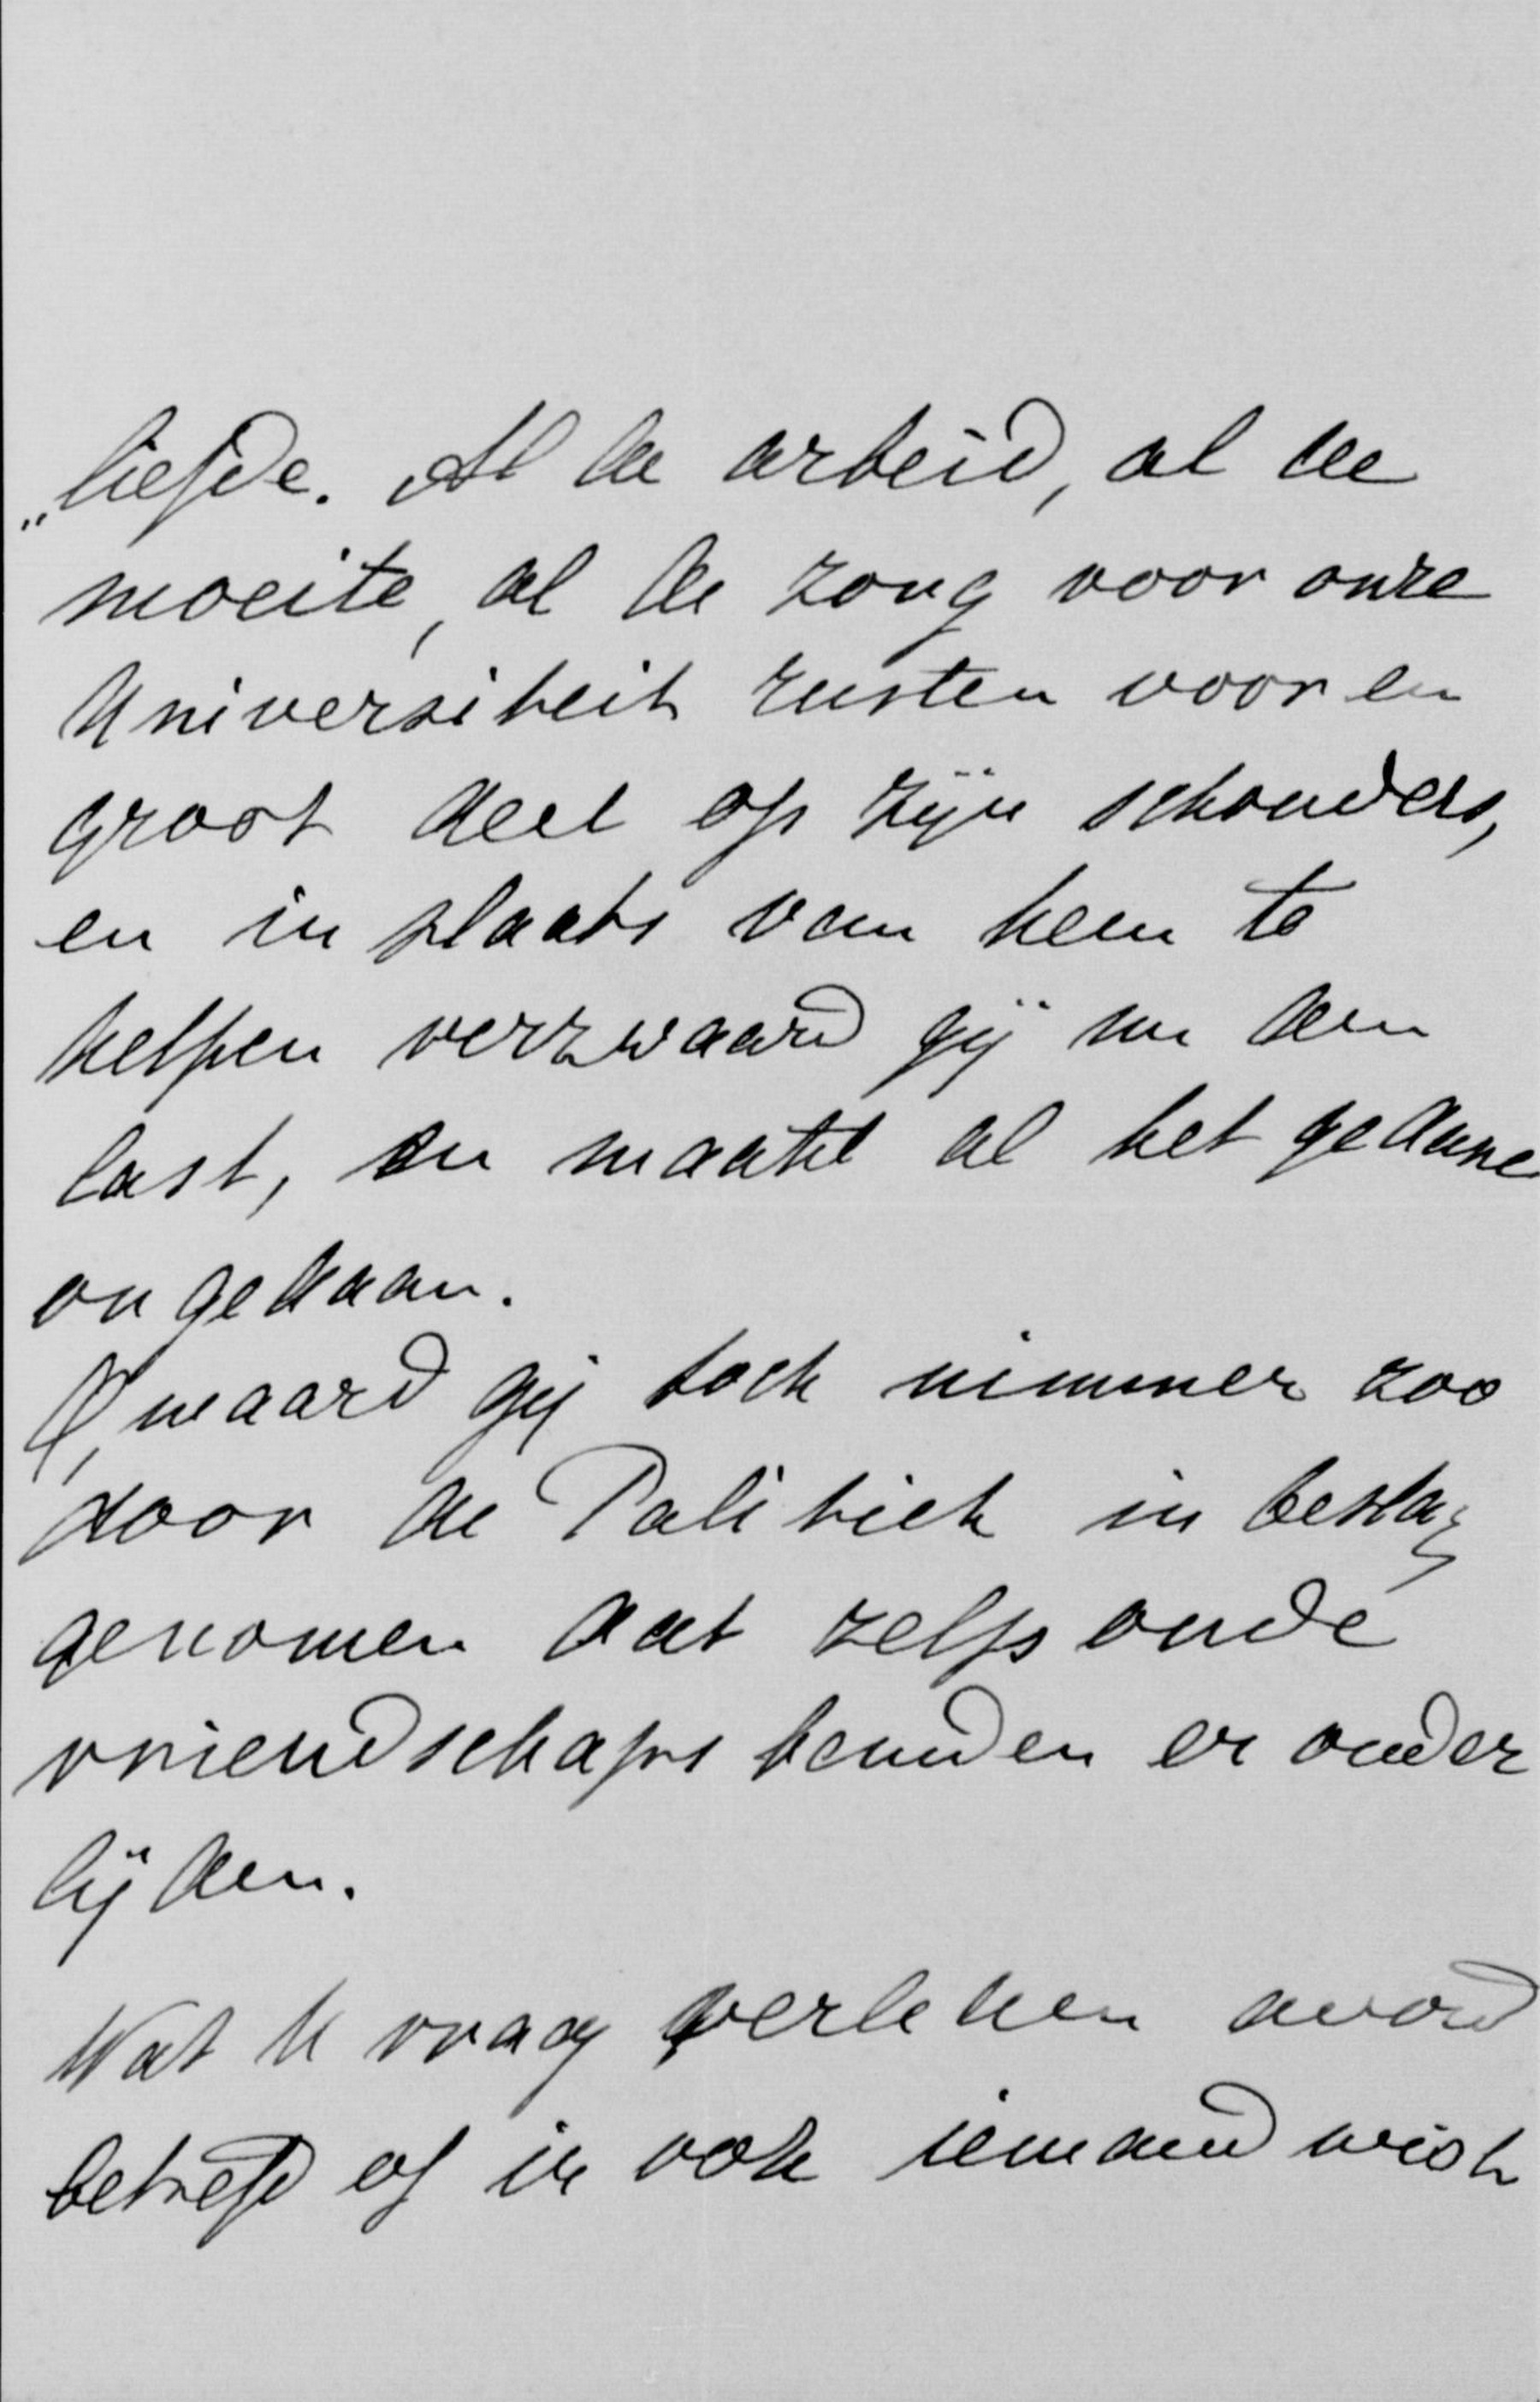 „liefde. Al de arbeid, al de
moeite, al de zorg voor onze
Universiteit rusten voor en
groot deel op zijn schouders,
en in plaats van hem te
helpen verzwaard gij nu den
last, en maakt al het gedane
ongedaan.
O, waard gij toch nimmer zoo
door de Politiek in beslag
genomen dat zelfs oude
vriendschaps banden er onder
lijden.
Wat U vraag verleden avond
betreft of ik ook iemand wist